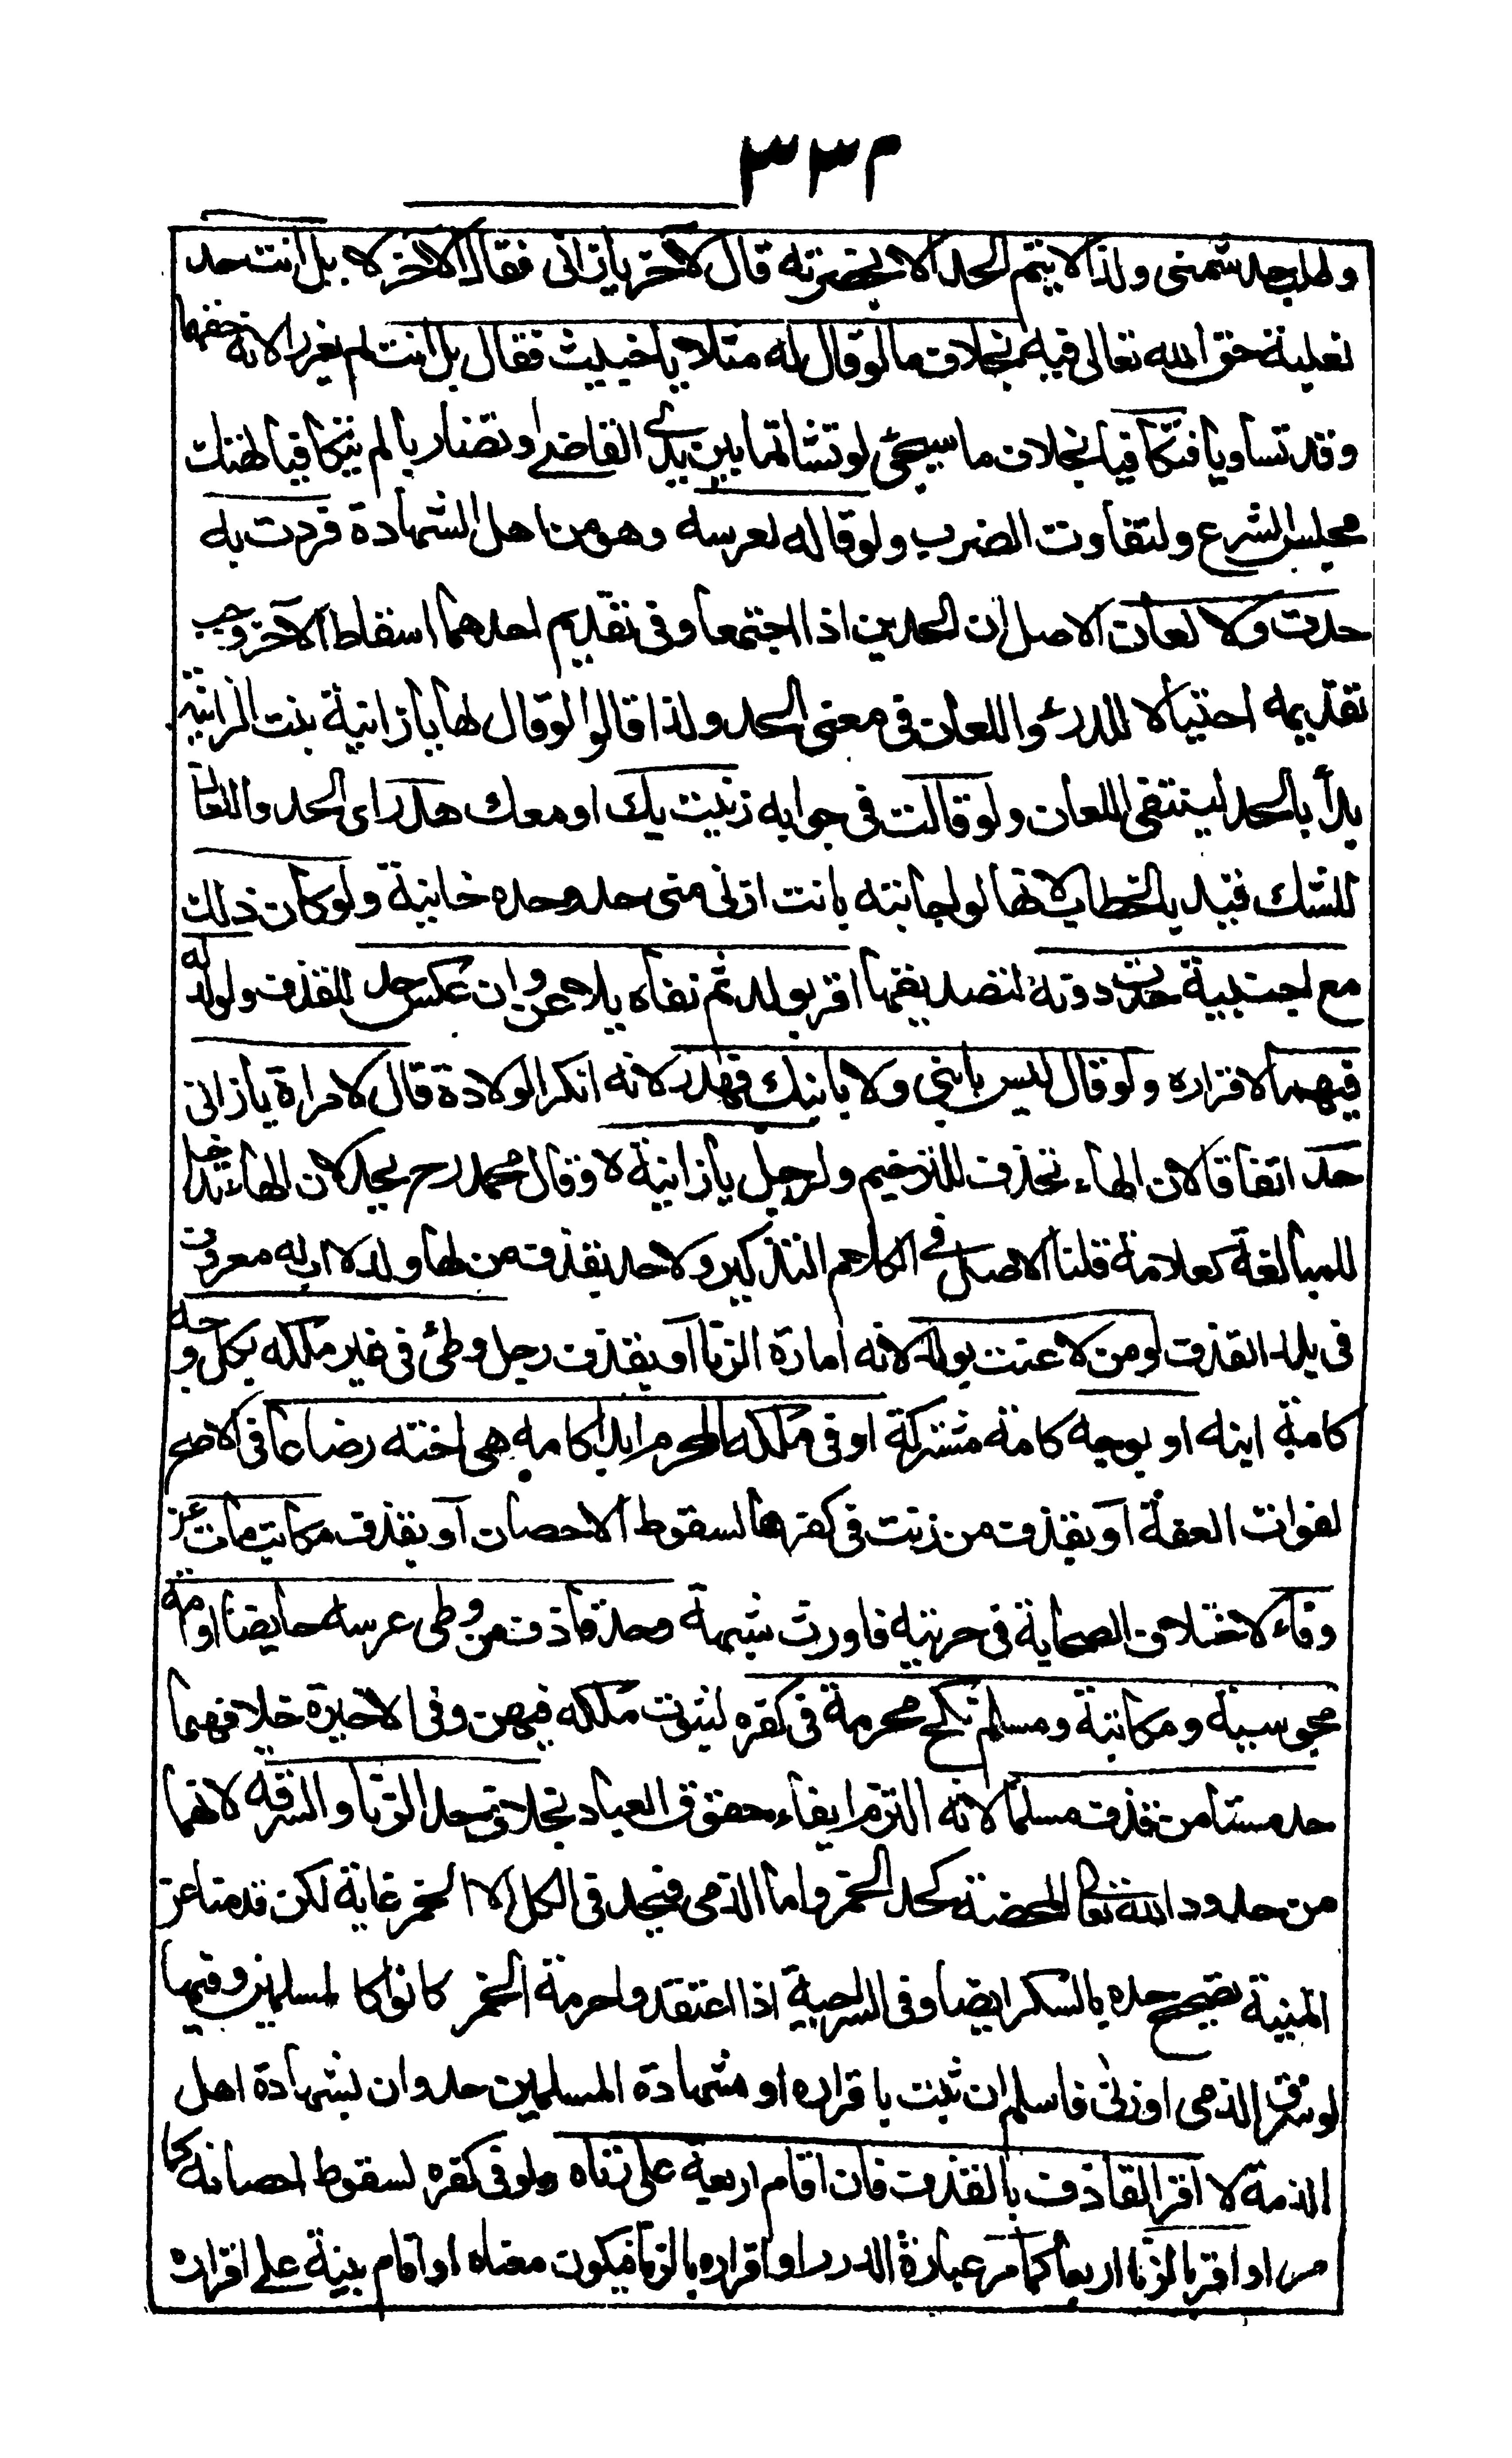 ٣٣٢
وطلب حد شمنى ولذا لا يتم الحد الا بحضرته قال لآخر يازانى فقال الاخر لا بل انت حد
لغلبة حق الله تعالى فيه بخلاف ما لو قال له مثلا يا خبيث فقال بل انت لم يعزر لانه حقهما
وقد تساويا فتكافيا بخلاف ما سيجئ لو تشاتما بين يدى القاضى او تضاربا لم يتكافيا لهتك
مجلس الشرع ولتفاوت الضرب ولو قاله لعرسه وهو من اهل الشهادة فردت به
حدت ولا لعان الاصل ان الحدين اذا اجتمعا وفى تقديم احدهما اسقاط الآخر وجب
تقديمه احتيالا للدرء واللعان فى معنى الحد ولذا قالوا لو قال لها يا زانية بنت الزانية
بدأ بالحد لينتفى اللعان ولو قالت فى جوابه زنيت بك او معك هدر اى الحد واللعان
للشك قيد بالخطاب لانها لو اجابته بانت ازنى منى حد وحده خانية ولو كان ذلك
مع اجنبية حدت دونه لتصديقها اقر بولد ثم نفاه يلاعن وان عكس حد للقذف والولد له
فيهما لاقراره ولو قال ليس بابنى ولا بابنك فهدر لانه انكر الولادة قال لامراة يازانى
حد اتفاقا لان الهاء تحذف للترخيم ولرجل يا زانية لا وقال محمد رح يحد لان الهاء تدخل
للمبالغة كعلامة قلنا الاصل فى الكلام التذكير ولا حد بقذف من لها ولد لا اب له معروف
فى بلد القذف او من لاعنت بولد لانه امارة الزنا او بقذف رجل وطئ فى غير ملكه بكل وجه
كامة ابنه او بوجه كامة مشتركة او فى ملكه المحرم ابدا كامه هى اخته رضاعا فى الاصح
لفوات العفة او بقذف من زنت فى كفرها لسقوط الاحصان او بقذف مكاتب مات عن
وفاء لاختلاف الصحابة فى حريته فاورث شبهة وحد قاذف من وطى عرسه حايضا او امة
مجوسية ومكاتبة ومسلم نكح محرمة فى كفره لثبوت ملكه فيهن وفى الاخيرة خلافهما
حد مستامن قذف مسلما لانه التزم ايفاء حقوق العباد بخلاف حد الزنا والسرقة لانهما
من حدود الله تعالى المحضة كحد الخمر واما الذمى فيحد فى الكل الا الخمر غاية لكن قدمنا عن
المنية تصحيح حده بالسكر ايضا وفى السراجية اذا اعتقدوا حرمة الخمر كانوا كالمسلمين وفيها
لو سرق الذمى او زنى فاسلم ان ثبت باقراره او بشهادة المسلمين حد وان بشهادة اهل
الذمة لا اقر القاذف بالقذف فان اقام اربعة على زناه ولو فى كفره لسقوط احصانه كما
مر او اقر بالزنا اربعا كما مر عبارة الدرر او اقراره بالزنا فيكون معناه او اقام بينة على اقراره